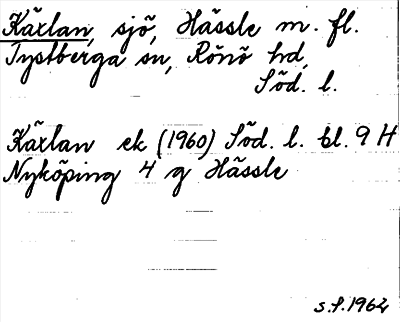 Kärlan, sjö, Hässle m. fl.
Tystberga sn, Rönö hd,
Söd. l.
Kärlan ek (1960) Söd. l. bl. 9 H
Nyköping 4 g Hässle
s.f. 1964